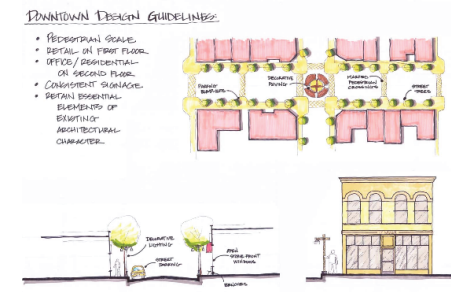 DOWNTOWN DESIGN GUIDELINES:
• PEDESTRIAN SCALE
• RETAIL ON FIRST FLOOR
• OFFICE/RESIDENTIAL
ON SECOND FLOOR
• CONSISTENT SIGNAGE
• RETAIN ESSENTIAL
ELEMENTS OF
EXISTING
ARCHITECTURAL
CHARACTER
DECORATIVE
PAVING
PEDESTRIAN
CROSSINGS
STREET
TREES
DECORATIVE
LIGHTING
STREET
PARKING
OPEN
STORE FRONT
WINDOWS
BENCHES